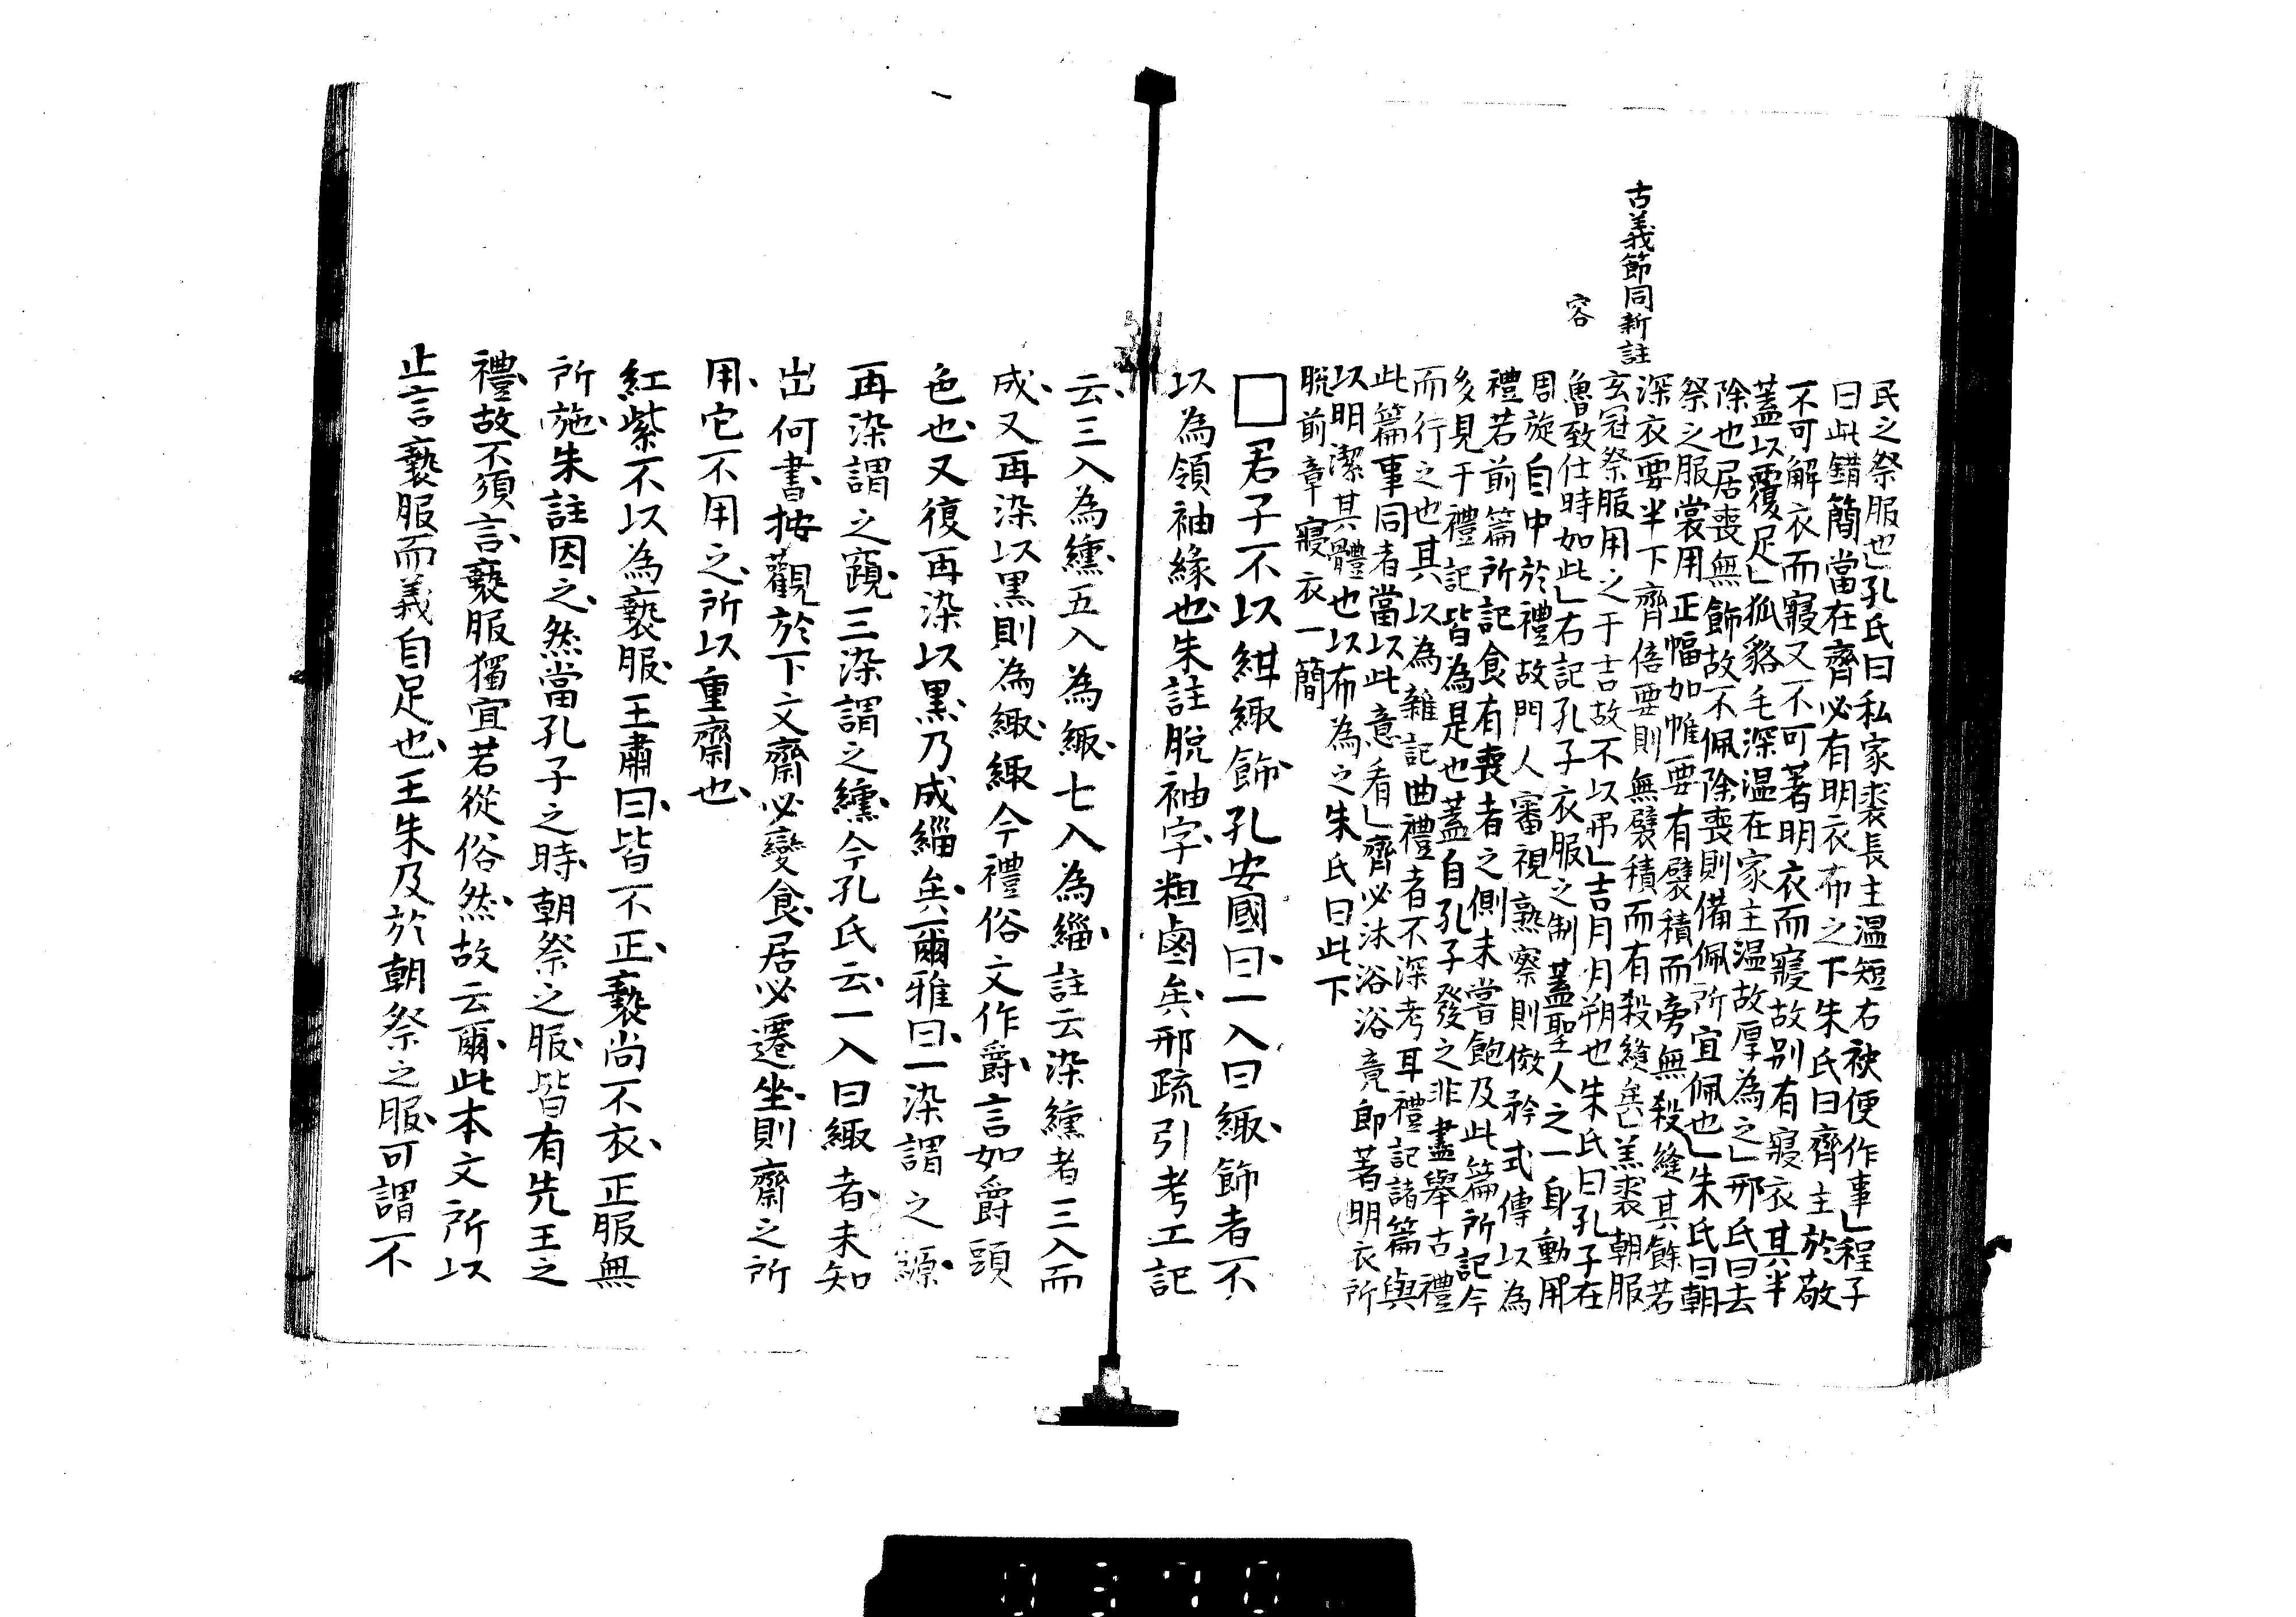 古義節同新註
容
民之祭服也」孔氏曰私家裘長主温短右袂便作事」程子
曰此錯簡當在齊必有明衣布之下朱氏曰齊主於敬
不可解衣而寢又不可著明衣而寢故別有寢衣其半
蓋以覆足」狐貉毛深温在家主温故厚為之」邢氏曰去
除也居喪無飾故不佩除喪則備佩所宜佩也」朱氏曰朝
祭之服裳用正幅如帷要有襞積而旁無殺縫其餘若
深衣要半下齊倍要則無襞積而有殺縫矣」羔裘朝服
玄冠祭服用之于吉故不以弔」吉月月朔也朱氏曰孔子在
魯致仕時如此」右記孔子衣服之制蓋聖人之一身動用
周旋自中於禮故門人審視熟察則倣矜式傳以為
禮若前篇所記食有喪者之側未嘗飽及此篇所記今
多見于禮記皆為是也蓋自孔子發之非盡舉古禮
而行之也其以為雜記曲禮者不深考耳禮記諸篇與
此篇事同者當以此意看」齊必沐浴浴竟即著明衣所
以明潔其體也以布為之朱氏曰此下
脫前章寢衣一簡
君子不以紺緅飾孔安國曰一入曰緅飾者不
以為領袖緣也朱註脫袖字粗鹵矣邢疏引考工記
云三入為纁五入為緅七入為緇註云染纁者三入而
成又再染以黑則為緅緅今禮俗文作爵言如爵頭
色也又復再染以黑乃成緇矣爾雅曰一染謂之縓
再染謂之竀三染謂之纁今孔氏云一入曰緅者未知
出何書按觀於下文齋必變食居必遷坐則齋之所
用它不用之所以重齋也
紅紫不以為褻服王肅曰皆不正褻尚不衣正服無
所施朱註因之然當孔子之時朝祭之服皆有先王之
禮故不須言褻服獨宜若從俗然故云爾此本文所以
止言褻服而義自足也王朱及於朝祭之服可謂不